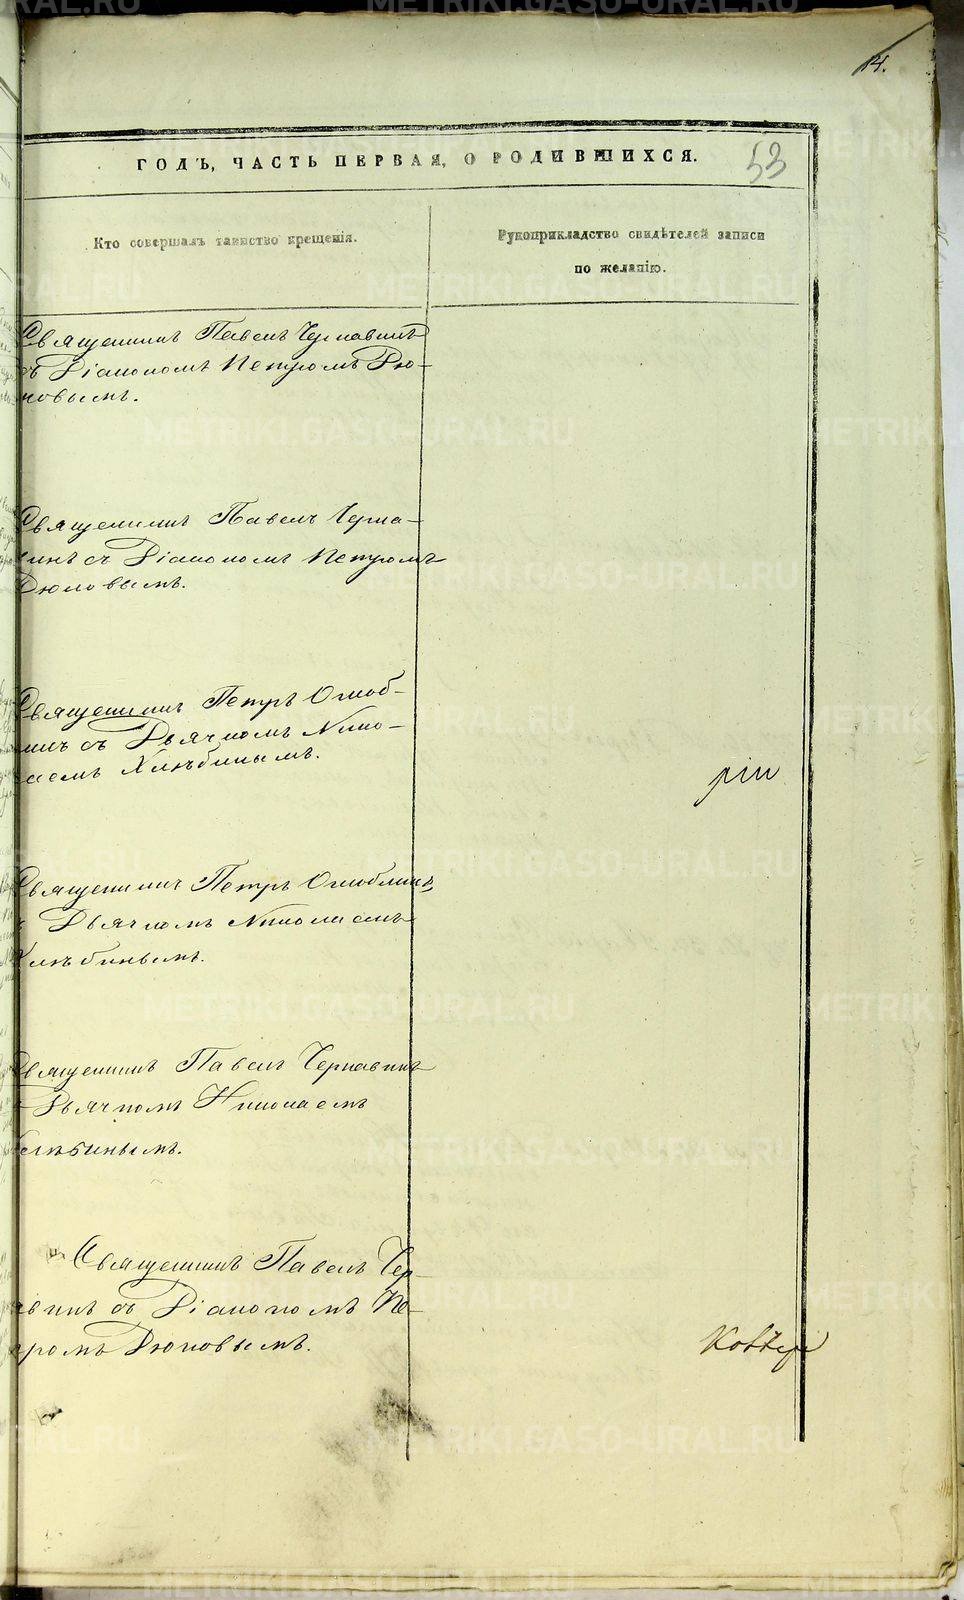 14.
ГОДЪ, ЧАСТЬ ПЕРВАЯ, О РОДИВШИХСЯ.
53
Кто совершалъ таинство крещенія.
Рукоприкладство свидѣтелей записи
по желанію.
Священникъ Павелъ Чернавинъ
съ Діакономъ Петромъ Дю-
ковымъ.
Священникъ Павелъ Черна-
винъ съ Діакономъ Петромъ
Дюковымъ.
Священникъ Петръ Оглоб-
линъ съ Дьячкомъ Нико-
лаемъ Хлѣбинымъ.
Священникъ Петръ Оглоблинъ
съ Дьячкомъ Николаемъ
Хлѣбинымъ.
Священникъ Павелъ Чернавинъ
Дьячкомъ Николаемъ
Хлѣбинымъ.
Священникъ Павелъ Чер-
навинъ съ Діакономъ Пе-
тромъ Дюковымъ.
METRIKI.GASO-URAL.RU